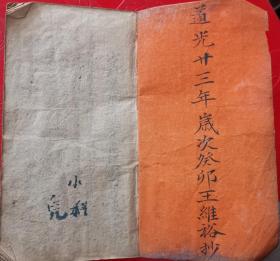 道光廿三年歲次癸卯王維裕抄
小科
兒